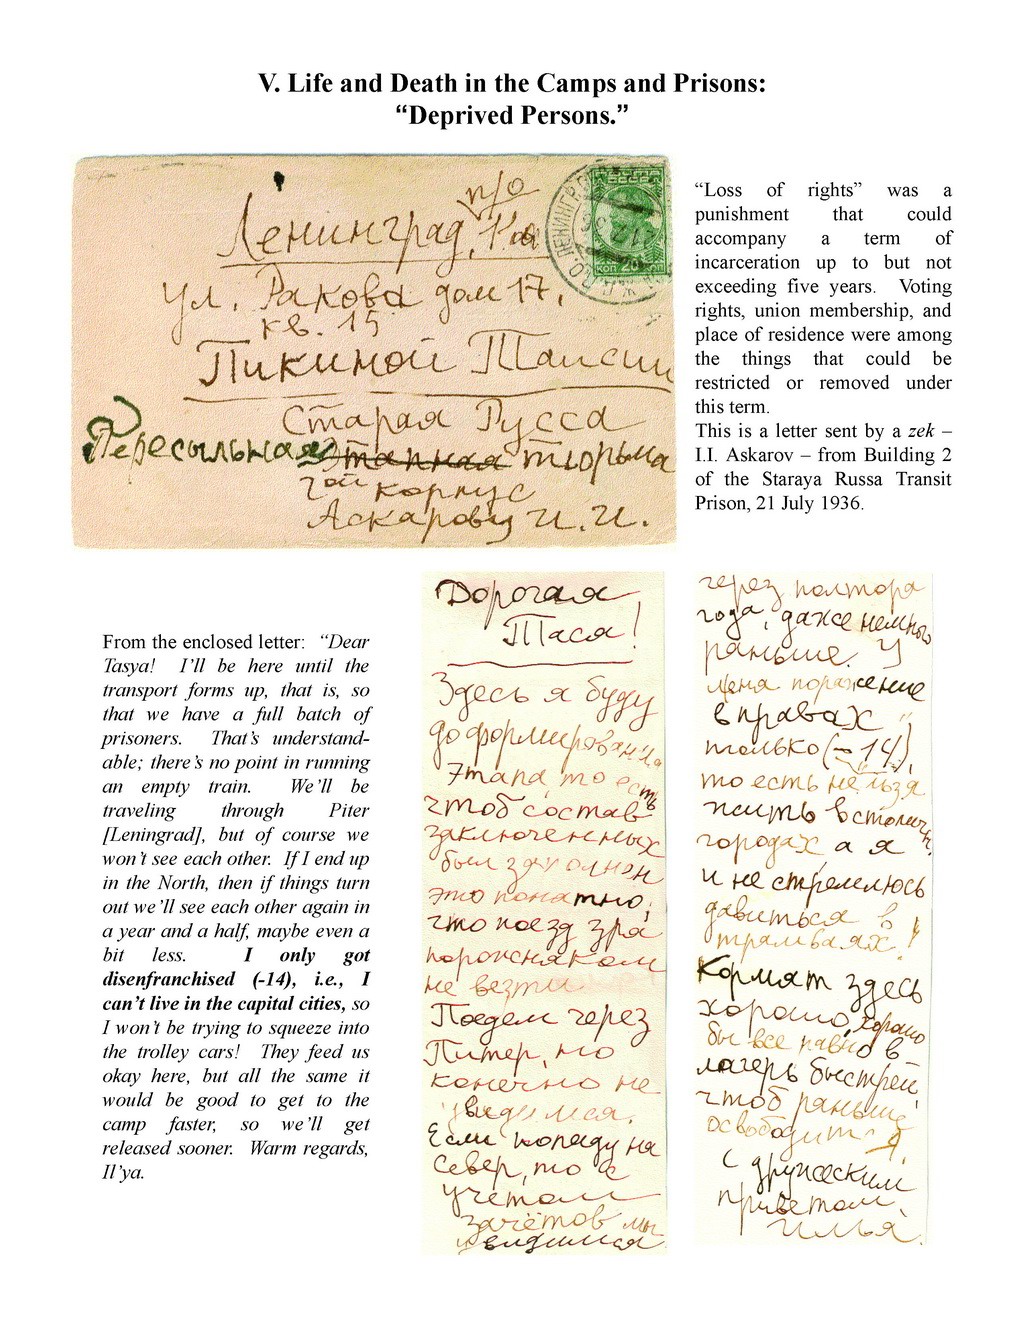 V. Life and Death in the Camps and Prisons:
“Deprived Persons.”
п/о
Ленинград, 1
ул. Ракова дом 17,
кв. 15
Пикиной Таисии
Старая Русса
Пересыльная Этапная тюрьма
2ой корпус
Аскарову И. И.
КОП 20
“Loss of rights” was a
punishment that could
accompany a term of
incarceration up to but not
exceeding five years. Voting
rights, union membership, and
place of residence were among
the things that could be
restricted or removed under
this term.
This is a letter sent by a zek –
I.I. Askarov – from Building 2
of the Staraya Russa Transit
Prison, 21 July 1936.
From the enclosed letter: “Dear
Tasya! I’ll be here until the
transport forms up, that is, so
that we have a full batch of
prisoners. That’s understand-
able; there’s no point in running
an empty train. We’ll be
traveling through Piter
[Leningrad], but of course we
won’t see each other. If I end up
in the North, then if things turn
out we’ll see each other again in
a year and a half, maybe even a
bit less. I only got
disenfranchised (-14), i.e., I
can’t live in the capital cities, so
I won’t be trying to squeeze into
the trolley cars! They feed us
okay here, but all the same it
would be good to get to the
camp faster, so we’ll get
released sooner. Warm regards,
Il’ya.
Дорогая
Тася!
Здесь я буду
до формирования
Этапа, то есть
чтоб состав
заключенных
был заполнен
это понятно;
что поезд зря
порожняком
не везти.
Поедем через
Питер, но
конечно не
увидимся.
Если попаду на
Север, то с
учётом
зачётов мы
увидимся
через полтора
года, даже немного
раньше. У
меня поражение
в правах
только (-14),
то есть нельзя
жить в столичн.
городах а я
и не стремлюсь
давиться в
трамваях!
Кормят здесь
хорошо, хорошо
бы все равно в
лагерь быстрей,
чтоб раньше
освободиться.
С дружеским
приветом,
Илья.